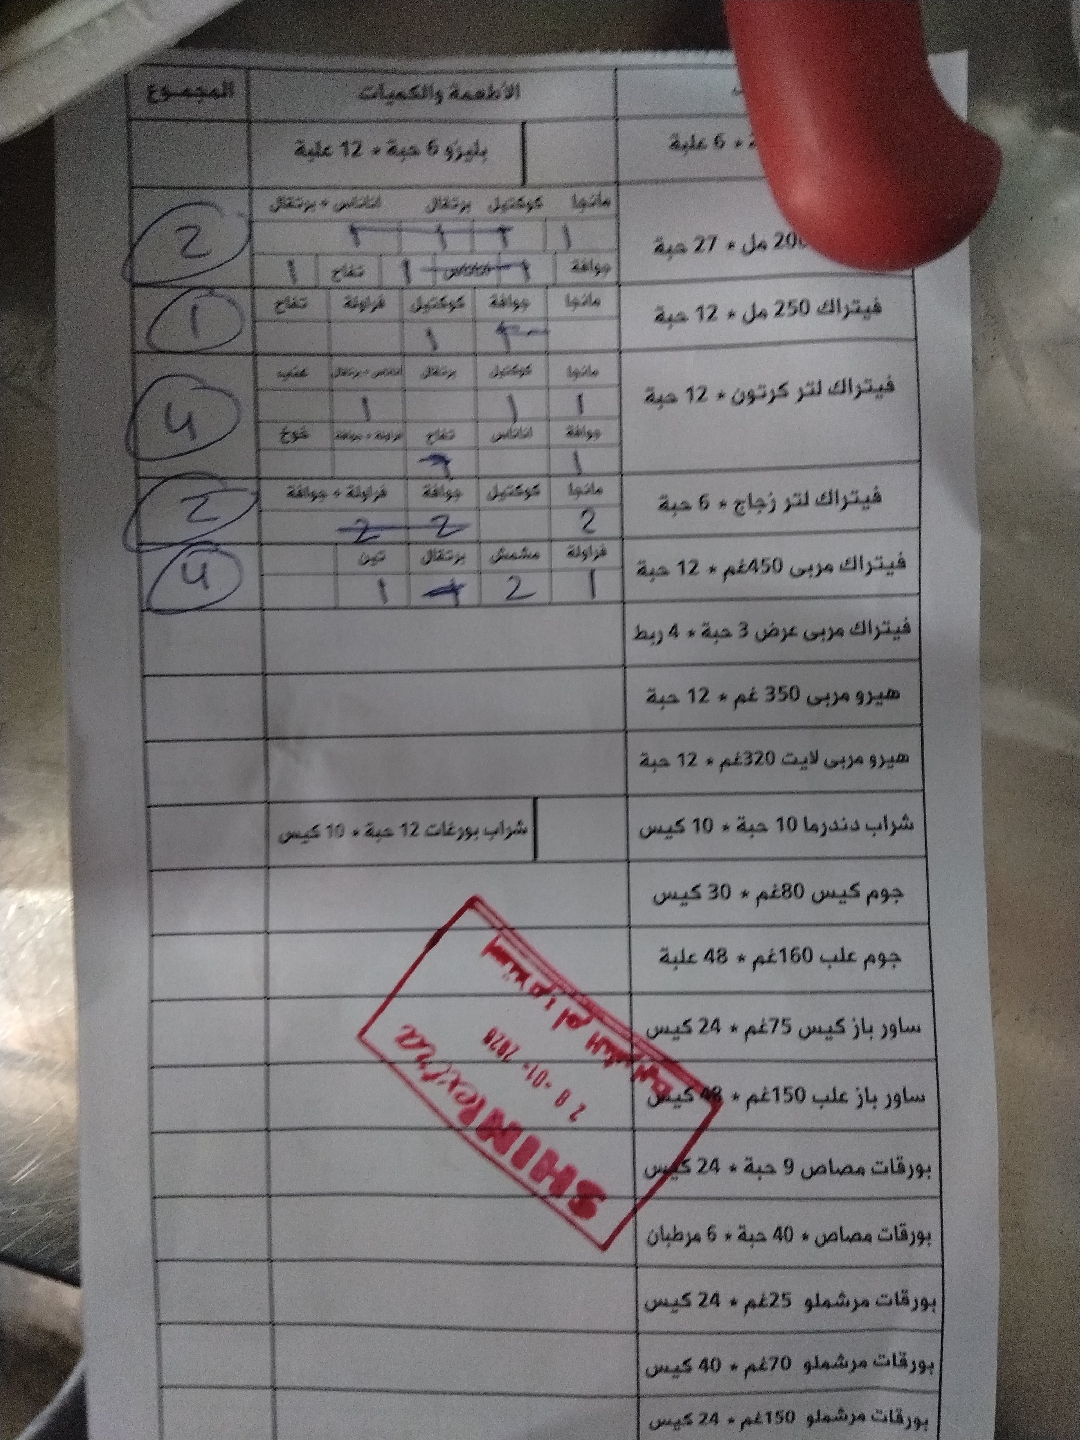 الأطعمة والكميات المجموع
* 6 علبة بليزو 6 حبة * 12 علبة
مانجا كوكتيل برتقال اناناس + برتقال
200 مل * 27 حبة 1 1 1 1 2
جوافة 1 اناناس 1 تفاح 1
فيتراك 250 مل * 12 حبة مانجا جوافة كوكتيل فراولة تفاح
1 1
فيتراك لتر كرتون * 12 حبة مانجا كوكتيل برتقال اناناس + برتقال عنب
1 1 1 4
جوافة اناناس تفاح فراولة + جوافة خوخ
1
فيتراك لتر زجاج * 6 حبة مانجا كوكتيل جوافة فراولة + جوافة
2 2 2 2
فيتراك مربى 450غم * 12 حبة فراولة مشمش برتقال تين
1 2 1 1 4
فيتراك مربى عرض 3 حبة * 4 ربط
هيرو مربى 350 غم * 12 حبة
هيرو مربى لايت 320غم * 12 حبة
شراب دندرما 10 حبة * 10 كيس شراب بورغات 12 حبة * 10 كيس
جوم كيس 80غم * 30 كيس
جوم علب 160غم * 48 علبة
ساور باز كيس 75غم * 24 كيس
ساور باز علب 150غم * 48 كيس
بورقات مصاص 9 حبة * 24 كيس
بورقات مصاص * 40 حبة * 6 مرطبان
بورقات مرشملو 25غم * 24 كيس
بورقات مرشملو 70غم * 40 كيس
بورقات مرشملو 150غم * 24 كيس
SHINI extra